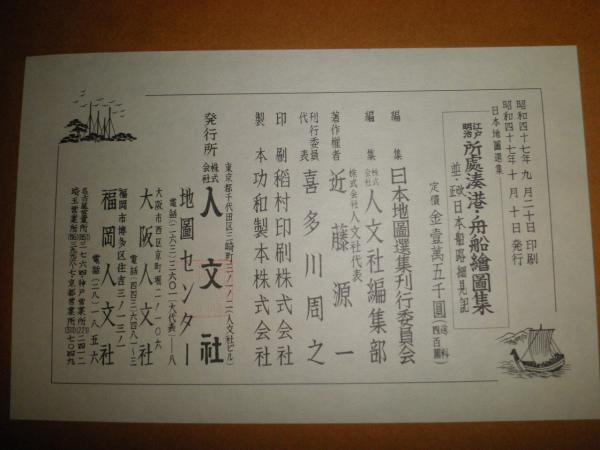 昭和四十七年九月二十日印刷
昭和四十七年十月十日発行
日本地圖選集
江戸明治 所處湊港・舟船繪圖集
並・改正日本船路細見記
定價 金壹萬五千圓(送料四百圓)
編集 日本地圖選集刊行委員会
編集 株式会社 人文社編集部
著作権者 株式会社人文社代表 近藤源一
刊行委員代表 喜多川周之
印刷 稻村印刷株式会社
製本 功和製本株式会社
発行所 株式会社 人文社
東京都千代田区三崎町三ノ一ノ二(人文社ビル)
地圖センター
電話(二六三)二六〇一大代表─八
大阪市西区京町堀二ノ一〇六
大阪人文社
電話(四四三)六四八一~三
福岡市博多区住吉三ノ一三ノ一
福岡人文社
電話(二八)一八五六